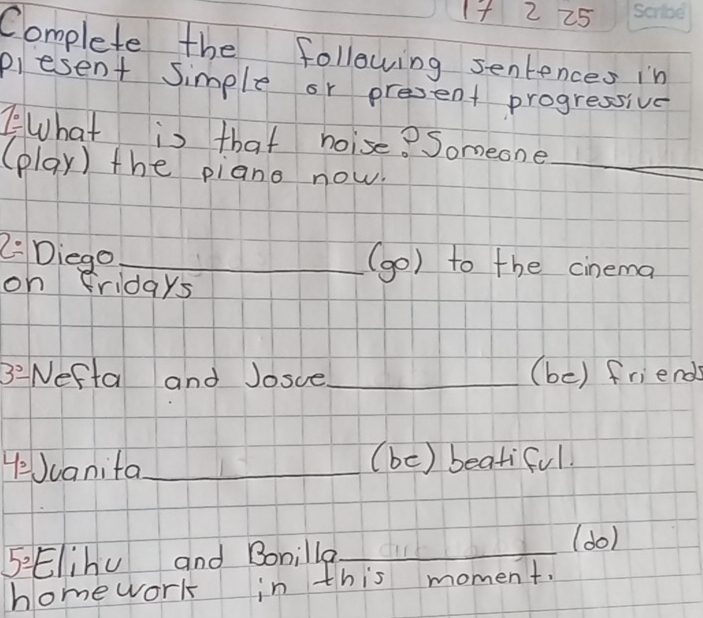 17 2 25 Scribe
Complete the following sentences in
present simple or present progressive
1=What is that noise? Someone
(play) the piano now.
2=Diego (go) to the cinema
on fridays
3=Nefta and Josue (be) friends
4=Juanita (be) beatiful.
5=Elihu and Bonilla (do)
homework in this moment.